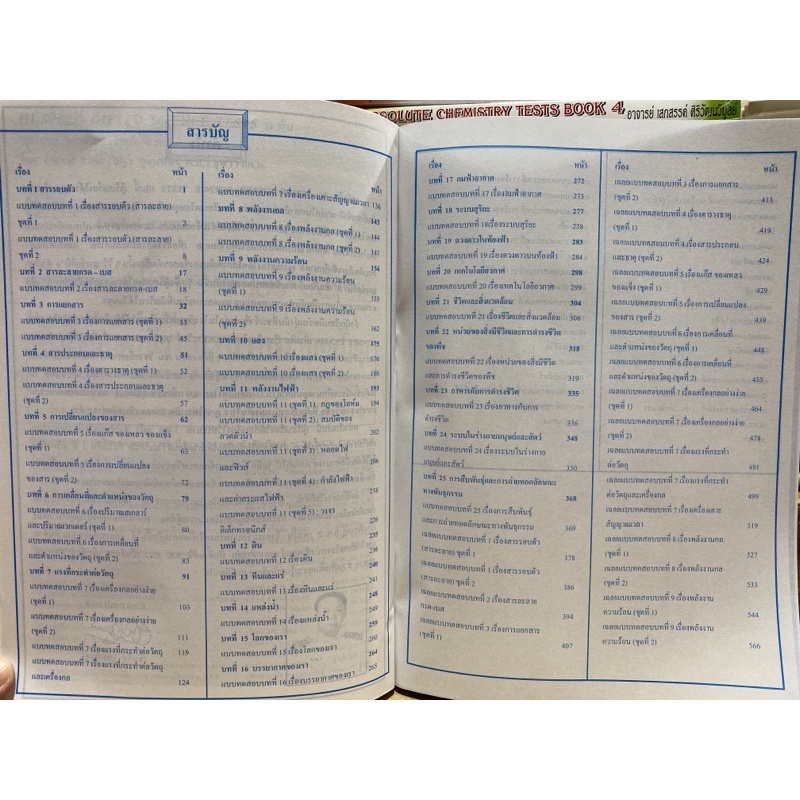 SOLUTE CHEMISTRY TESTS BOOK 4
อาจารย์ เสกสรรค์ ศิริวัฒนวิบูลย์
สารบัญ
เรื่อง หน้า
บทที่ 1 สารรอบตัว 1
แบบทดสอบบทที่ 1 เรื่องสารรอบตัว (สารละลาย)
ชุดที่ 1 2
แบบทดสอบบทที่ 1 เรื่องสารรอบตัว (สารละลาย)
ชุดที่ 2 8
บทที่ 2 สารละลายกรด-เบส 17
แบบทดสอบบทที่ 2 เรื่องสารละลายกรด-เบส 18
บทที่ 3 การแยกสาร 32
แบบทดสอบบทที่ 3 เรื่องการแยกสาร (ชุดที่ 1) 33
แบบทดสอบบทที่ 3 เรื่องการแยกสาร (ชุดที่ 2) 45
บทที่ 4 สารประกอบและธาตุ 51
แบบทดสอบบทที่ 4 เรื่องตารางธาตุ (ชุดที่ 1) 52
แบบทดสอบบทที่ 4 เรื่องสารประกอบและธาตุ
(ชุดที่ 2) 57
บทที่ 5 การเปลี่ยนแปลงของสาร 62
แบบทดสอบบทที่ 5 เรื่องแก๊ส ของเหลว ของแข็ง
(ชุดที่ 1) 63
แบบทดสอบบทที่ 5 เรื่องการเปลี่ยนแปลง
ของสาร (ชุดที่ 2) 72
บทที่ 6 การเคลื่อนที่และตำแหน่งของวัตถุ 79
แบบทดสอบบทที่ 6 เรื่องปริมาณสเกลาร์
และปริมาณเวกเตอร์ (ชุดที่ 1) 80
แบบทดสอบบทที่ 6 เรื่องการเคลื่อนที่
และตำแหน่งของวัตถุ (ชุดที่ 2) 85
บทที่ 7 แรงที่กระทำต่อวัตถุ 91
แบบทดสอบบทที่ 7 เรื่องเครื่องกลอย่างง่าย
(ชุดที่ 1) 103
แบบทดสอบบทที่ 7 เรื่องเครื่องกลอย่างง่าย
(ชุดที่ 2) 111
แบบทดสอบบทที่ 7 เรื่องแรงที่กระทำต่อวัตถุ 119
แบบทดสอบบทที่ 7 เรื่องแรงที่กระทำต่อวัตถุ
และเครื่องกล 124
เรื่อง หน้า
แบบทดสอบบทที่ 7 เรื่องเครื่องเคาะสัญญาณเวลา 136
บทที่ 8 พลังงานกล 143
แบบทดสอบบทที่ 8 เรื่องพลังงานกล (ชุดที่ 1) 144
แบบทดสอบบทที่ 8 เรื่องพลังงานกล (ชุดที่ 2) 147
บทที่ 9 พลังงานความร้อน 154
แบบทดสอบบทที่ 9 เรื่องพลังงานความร้อน
(ชุดที่ 1) 155
แบบทดสอบบทที่ 9 เรื่องพลังงานความร้อน
(ชุดที่ 2) 162
บทที่ 10 แสง 175
แบบทดสอบบทที่ 10 เรื่องแสง (ชุดที่ 1) 176
แบบทดสอบบทที่ 10 เรื่องแสง (ชุดที่ 2) 186
บทที่ 11 พลังงานไฟฟ้า 193
แบบทดสอบบทที่ 11 (ชุดที่ 1) : กฎของโอห์ม 194
แบบทดสอบบทที่ 11 (ชุดที่ 2) : สมบัติของ
ลวดตัวนำ 202
แบบทดสอบบทที่ 11 (ชุดที่ 3) : หลอดไฟ
และฟิวส์ 206
แบบทดสอบบทที่ 11 (ชุดที่ 4) : กำลังไฟฟ้า
และค่ากระแสไฟฟ้า 218
แบบทดสอบบทที่ 11 (ชุดที่ 5) : วงจร
อิเล็กทรอนิกส์ 226
บทที่ 12 ดิน 235
แบบทดสอบบทที่ 12 เรื่องดิน 236
บทที่ 13 หินและแร่ 240
แบบทดสอบบทที่ 13 เรื่องหินและแร่ 241
บทที่ 14 แหล่งน้ำ 248
แบบทดสอบบทที่ 14 เรื่องแหล่งน้ำ 249
บทที่ 15 โลกของเรา 259
แบบทดสอบบทที่ 15 เรื่องโลกของเรา 260
บทที่ 16 บรรยากาศของเรา 264
แบบทดสอบบทที่ 16 เรื่องบรรยากาศของเรา 265
เรื่อง หน้า
บทที่ 17 ลมฟ้าอากาศ 272
แบบทดสอบบทที่ 17 เรื่องลมฟ้าอากาศ 273
บทที่ 18 ระบบสุริยะ 277
แบบทดสอบบทที่ 18เรื่องระบบสุริยะ 278
บทที่ 19 ดวงดาวในท้องฟ้า 283
แบบทดสอบบทที่ 19 เรื่องดวงดาวในท้องฟ้า 284
บทที่ 20 เทคโนโลยีอวกาศ 298
แบบทดสอบบทที่ 20 เรื่องเทคโนโลยีอวกาศ 299
บทที่ 21 ชีวิตและสิ่งแวดล้อม 304
แบบทดสอบบทที่ 21 เรื่องชีวิตและสิ่งแวดล้อม 306
บทที่ 22 หน่วยของสิ่งมีชีวิตและการดำรงชีวิต
ของพืช 318
แบบทดสอบบทที่ 22 เรื่องหน่วยของสิ่งมีชีวิต
และการดำรงชีวิตของพืช 319
บทที่ 23 อาหารกับการดำรงชีวิต 335
แบบทดสอบบทที่ 23 เรื่องอาหารกับการ
ดำรงชีวิต 336
บทที่ 24 ระบบในร่างกายมนุษย์และสัตว์ 348
แบบทดสอบบทที่ 24 เรื่องระบบในร่างกาย
มนุษย์และสัตว์ 350
บทที่ 25 การสืบพันธุ์และการถ่ายทอดลักษณะ
ทางพันธุกรรม 368
แบบทดสอบบทที่ 25 เรื่องการสืบพันธุ์
และการถ่ายทอดลักษณะทางพันธุกรรม 369
เฉลยแบบทดสอบบทที่ 1 เรื่องสารรอบตัว
(สารละลาย) ชุดที่ 1 378
เฉลยแบบทดสอบบทที่ 1 เรื่องสารรอบตัว
(สารละลาย) ชุดที่ 2 386
เฉลยแบบทดสอบบทที่ 2 เรื่องสารละลาย
กรด-เบส 394
เฉลยแบบทดสอบบทที่ 3 เรื่องการแยกสาร
(ชุดที่ 1) 407
เรื่อง หน้า
เฉลยแบบทดสอบบทที่ 3 เรื่องการแยกสาร
(ชุดที่ 2) 413
เฉลยแบบทดสอบบทที่ 4 เรื่องตารางธาตุ
(ชุดที่ 1) 419
เฉลยแบบทดสอบบทที่ 4 เรื่องสารประกอบ
และธาตุ (ชุดที่ 2) 424
เฉลยแบบทดสอบบทที่ 5 เรื่องแก๊ส ของเหลว
ของแข็ง (ชุดที่ 1) 429
เฉลยแบบทดสอบบทที่ 5 เรื่องการเปลี่ยนแปลง
ของสาร (ชุดที่ 2) 439
เฉลยแบบทดสอบบทที่ 6 เรื่องการเคลื่อนที่
และตำแหน่งของวัตถุ (ชุดที่ 1) 448
เฉลยแบบทดสอบบทที่ 6 เรื่องการเคลื่อนที่
และตำแหน่งของวัตถุ (ชุดที่ 2) 455
เฉลยแบบทดสอบบทที่ 7 เรื่องเครื่องกลอย่างง่าย
(ชุดที่ 1) 464
เฉลยแบบทดสอบบทที่ 7 เรื่องเครื่องกลอย่างง่าย
(ชุดที่ 2) 478
เฉลยแบบทดสอบบทที่ 7 เรื่องแรงที่กระทำ
ต่อวัตถุ 491
เฉลยแบบทดสอบบทที่ 7 เรื่องแรงที่กระทำ
ต่อวัตถุและเครื่องกล 499
เฉลยแบบทดสอบบทที่ 7 เรื่องเครื่องเคาะ
สัญญาณเวลา 519
เฉลยแบบทดสอบบทที่ 8 เรื่องพลังงานกล
(ชุดที่ 1) 527
เฉลยแบบทดสอบบทที่ 8 เรื่องพลังงานกล
(ชุดที่ 2) 533
เฉลยแบบทดสอบบทที่ 9 เรื่องพลังงาน
ความร้อน (ชุดที่ 1) 544
เฉลยแบบทดสอบบทที่ 9 เรื่องพลังงาน
ความร้อน (ชุดที่ 2) 566